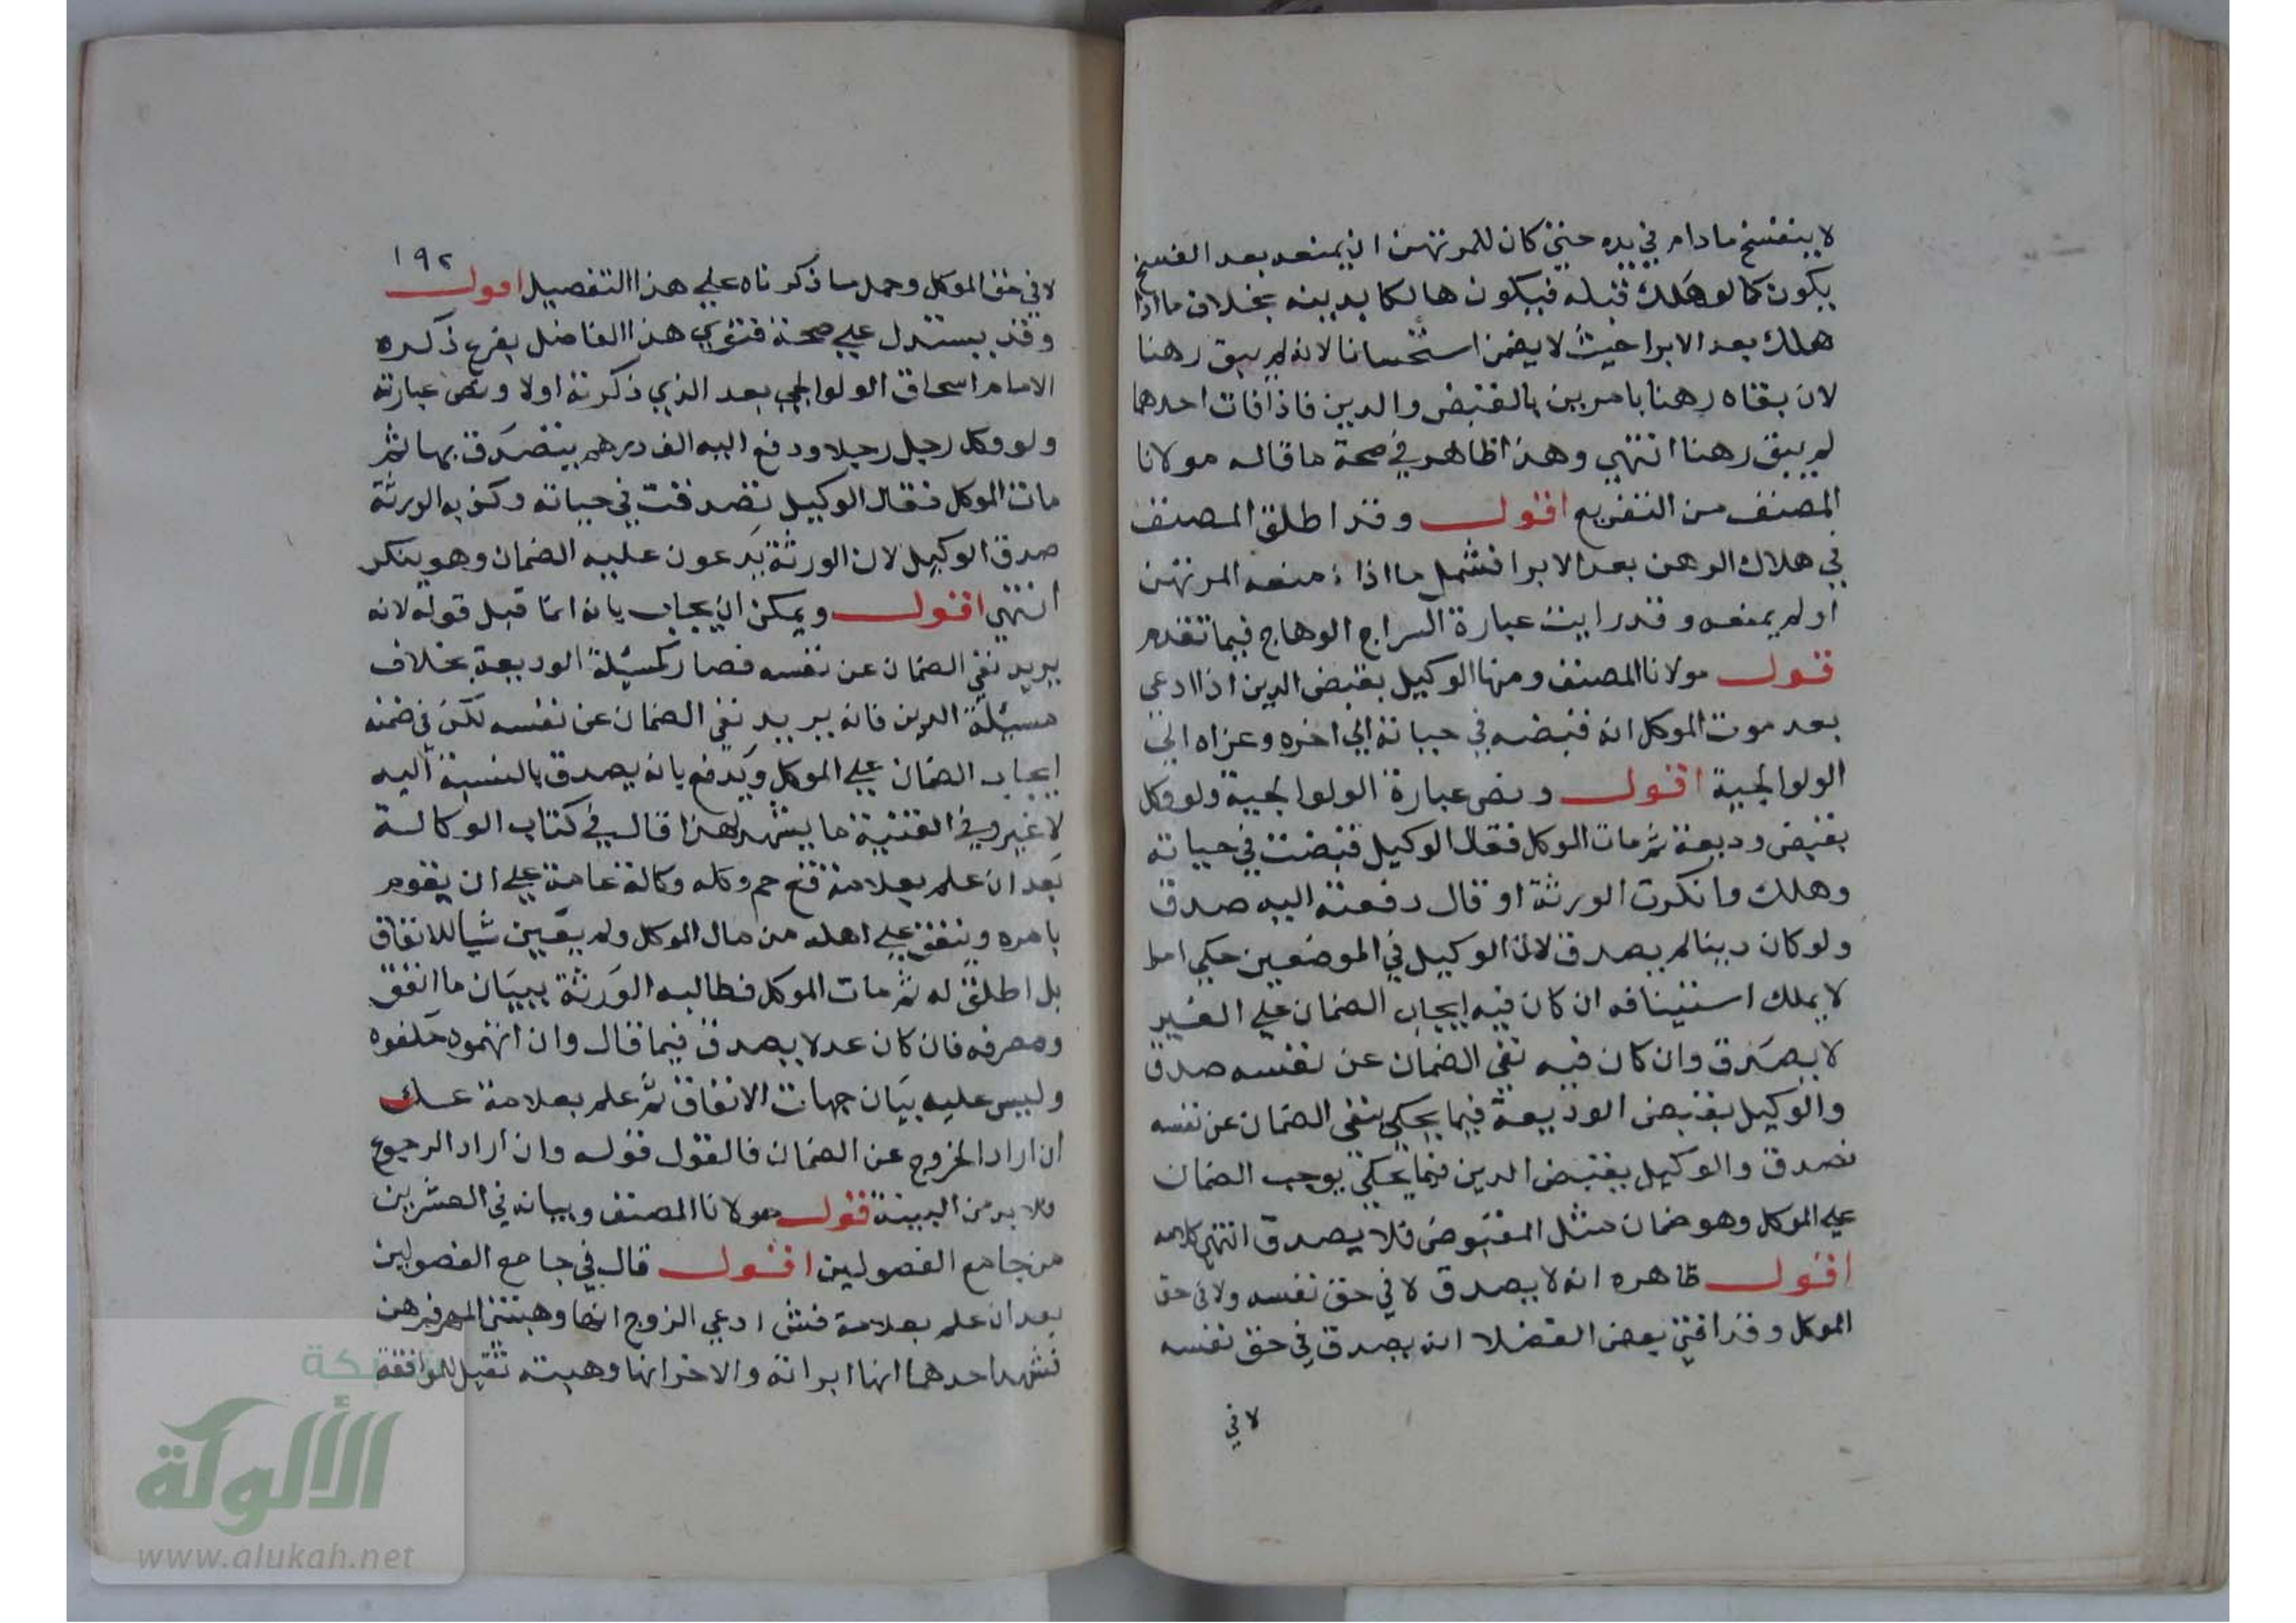 لا ينفسخ مادام في يده حتي كان للمرتهن ان يمنعه بعد الفسخ
يكون كما لو هلك قبله فيكون هالكا بدينه بخلاف ما اذا
هلك بعد الابرا حيث لا يضمن استحسانا لانه لم يبق رهنا
لان بقاه رهنا بامرين بالقبض والدين فاذا فات احدهما
لم يبق رهنا انتهي وهذا ظاهر في صحة ما قاله مولانا
المصنف من التفريع اقول وقد اطلق المصنف
في هلاك الرهن بعد الابرا فشمل ما اذا منعه المرتهن
او لم يمنعه وقد رايت عبارة السراج الوهاج فيما تقدم
قول مولانا المصنف ومنها الوكيل بقبض الدين اذا ادعي
بعد موت الموكل انه قبضه في حياته الي اخره وعزاه الي
الولوالجية اقول ونص عبارة الولوالجية ولو وكل
بقبض وديعة ثم مات الموكل فقال الوكيل قبضت في حياته
وهلك وانكرت الورثة او قال دفعته اليه صدق
ولو كان دينا لم يصدق لان الوكيل في الموضعين حكي امرا
لا يملك استينافه ان كان فيه ايجاب الضمان علي الغير
لا يصدق وان كان فيه نفي الضمان عن نفسه صدق
والوكيل بقبض الوديعة فيما يحكي ينفي الضمان عن نفسه
فصدق والوكيل بقبض الدين فيما يحكي يوجب الضمان
علي الموكل وهو ضمان مثل المقبوض فلا يصدق انتهي كلامه
اقول ظاهره انه لا يصدق لا في حق نفسه ولا في حق
الموكل وقد افتي بعض الفضلا انه يصدق في حق نفسه
لا في
١٩٢
لا في حق الموكل وحمل ما ذكرناه علي هذا التفصيل اقول
وقد يستدل علي صحة فتوي هذا الفاضل بفرع ذكره
الامام اسحاق الولوالجي بعد الذي ذكرته اولا ونص عبارته
ولو وكل رجل رجلا ودفع اليه الف درهم يتصدق بها ثم
مات الموكل فقال الوكيل تصدقت في حياته وكذبه الورثة
صدق الوكيل لان الورثة يدعون عليه الضمان وهو ينكر
انتهي اقول ويمكن ان يجاب بانه انما قبل قوله لانه
يريد نفي الضمان عن نفسه فصار كمسئلة الوديعة بخلاف
مسئلة الدين فانه يريد نفي الضمان عن نفسه لكن في ضمنه
ايجاب الضمان علي الموكل ويدفع بانه يصدق بالنسبة اليه
لا غير وفي القنية ما يشهد لهذا قال في كتاب الوكالة
بعد ان علم بعلامة قع حم وكله وكالة عامة علي ان يقوم
بامره وينفق علي اهله من مال الموكل ولم يعين شيا للانفاق
بل اطلق له ثم مات الموكل فطالبه الورثة ببيان ما انفق
ومصرفه فان كان عدلا يصدق فيما قال وان اتهموه حلفوه
وليس عليه بيان جهات الانفاق ثم علم بعلامة عك
ان اراد الخروج عن الضمان فالقول قوله وان اراد الرجوع
فلا بد من البينة قول مولانا المصنف وبيانه في العشرين
من جامع الفصولين اقول قال في جامع الفصولين
بعد ان علم بعلامة فش ادعي الزوج انها وهبتني المهر فبرهن
فشهد احدهما انها ابراته والاخر انها وهبته تقبل للموافقة
شبكة
الألوكة
www.alukah.net